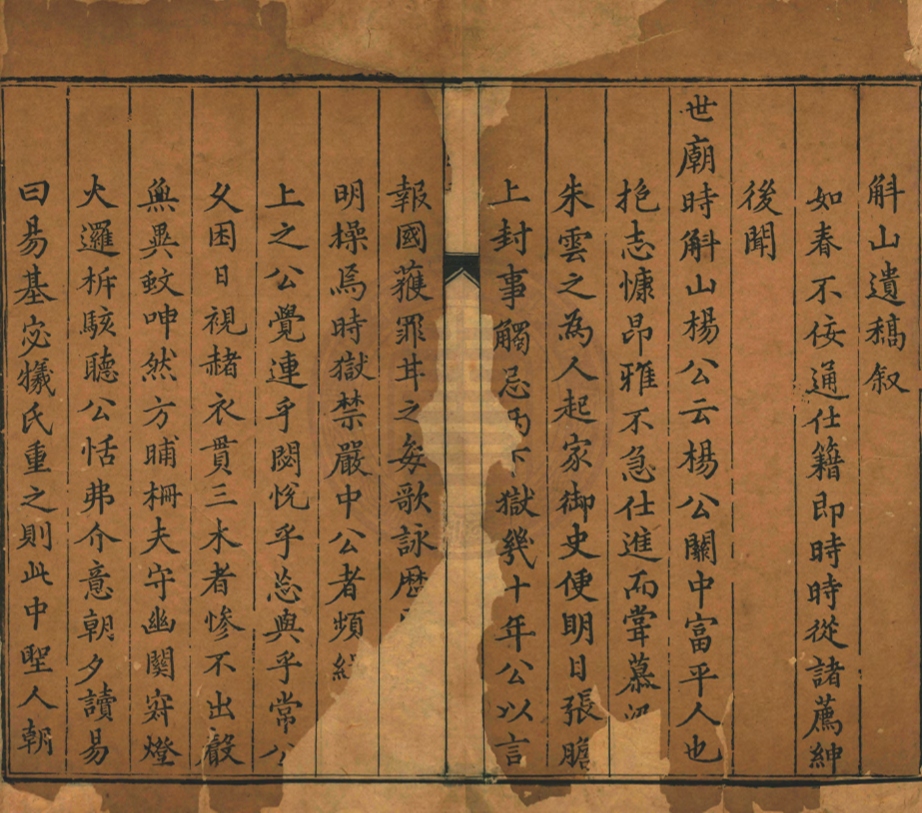 斛山遺稿叙
如春不佞通仕籍即時時從諸薦紳
後聞
世廟時斛山楊公云楊公關中富平人也
抱志慷昂雅不急仕進而甞慕
朱雲之為人起家御史便明目張膽
上封事觸忌下獄幾十年公以言
報國獲罪甘之每歌詠歷
明橾焉時獄禁嚴中公者頻
上之公覺連乎閟悅乎蕊與乎常
父困日視赭衣貫三木者慘不出殸
無異蚊呻然方晡柵夫守幽闃穽燈
火邏柝駭聽公恬弗介意朝夕讀易
曰易基宓犧氏重之則此中聖人朝